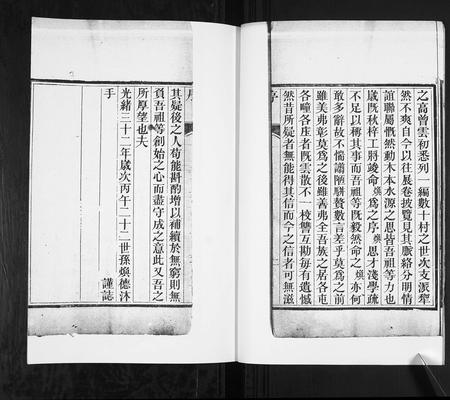 之高曾雲礽悉列一編數十村之世次支派犁
然不爽自今以往展卷披覽見其脈絡分明情
誼聯屬慨然動木本水源之思皆吾祖等力也
歲既秋梓工將竣命煥為之序煥思才淺學疏
不足以稱其事而吾祖等既毅然命之煥亦何
敢多辭故不惴譾陋駢贅數言差乎莫為之前
雖美弗彰莫為之後雖善弗全吾族之居各屯
各疃各座者既雲散不一校讐互勘毎有遺憾
然昔所疑者無能得其信而今之信者可無滋
其疑後之人苟能斟酌增以補續於無窮則無
負吾祖等創始之心而盡守成之意此又吾之
所厚望也夫
光緒三十二年歲次丙午二十二世孫煥德沐
手
謹誌
序